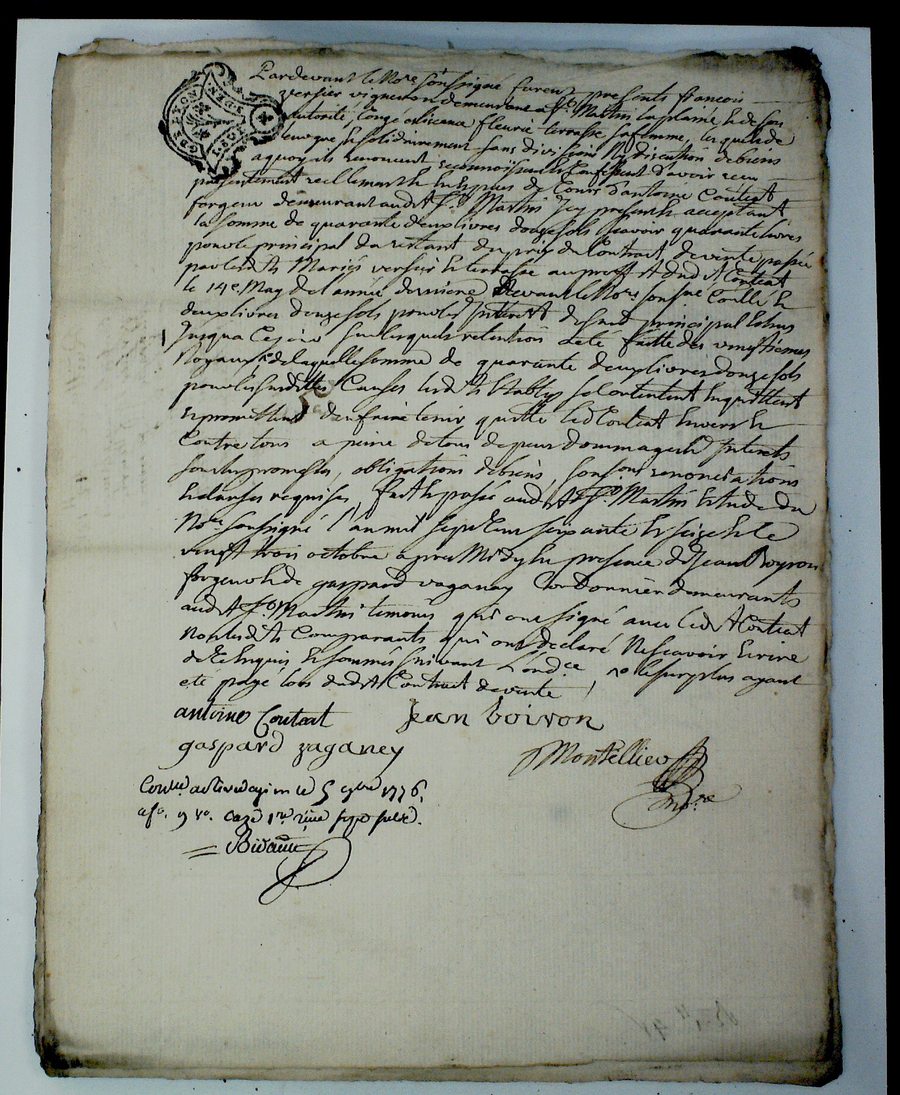 Pardevant le No.re soussigné furent presents francois
versier vigneron demeurant a St. Martin la plaine & de son
autorité, congé & licence fleurie terrasse sa femme, lesquels de
leur gré & solidairement sans division ny discution de biens
a quoy ils renoncent reconnoissent & confessent d'avoir reçu
presentement reellement & en especes de cours d'antoine Coutcat
forgeur demeurant audit St. Martin Icy present & acceptant
la somme de quarante deux livres douze sols scavoir quarante livres
pour le principal du restant du prix du Contract de vente passée
par lesdits Mariés versier & terrasse au proffit dudit Contcat
le 14e. May de l'année derniere devant le No.re soussigné Conlle &
deux livres douze sols pour les Interets dudit principal Echus
Jusqua Ce jour sur lesquels retention a été faitte des vingtiemes
Royaux de laquelle somme de quarante deux livres douze sols
pour les susdittes Causes lesdits Etablis se Contentent En quittent
Et promettent d'en faire tenir quitte ledit Contcat Envers &
Contre tous a peine de tous depens dommages & Interets
sous les promesses, obligations de biens, soumissions renonciations
& clauses requises, fait & passé audit St. Martin Etude du
No.re soussigné l'an mil sept Cent soixante & seize & le
vingt trois octobre apres Midy En presence de Jean Boyron
forgeur & de gaspard vaganay Cordonnier demeurants
audit St. Martin temoins qui ont signé avec ledit Contcat
non lesdits Comparants qui ont declaré ne scavoir Ecrire
de ce Enquis & sommés suivant l'ord.ce le surplus ayant
eté payé lors dudit Contract de vente
antoine Contcat
Jean boiron
gaspard vaganey
Montellier
no.re
Con.lé a Rivedegier le 5 9bre 1776
a fo. 9 vo. Case 1re.